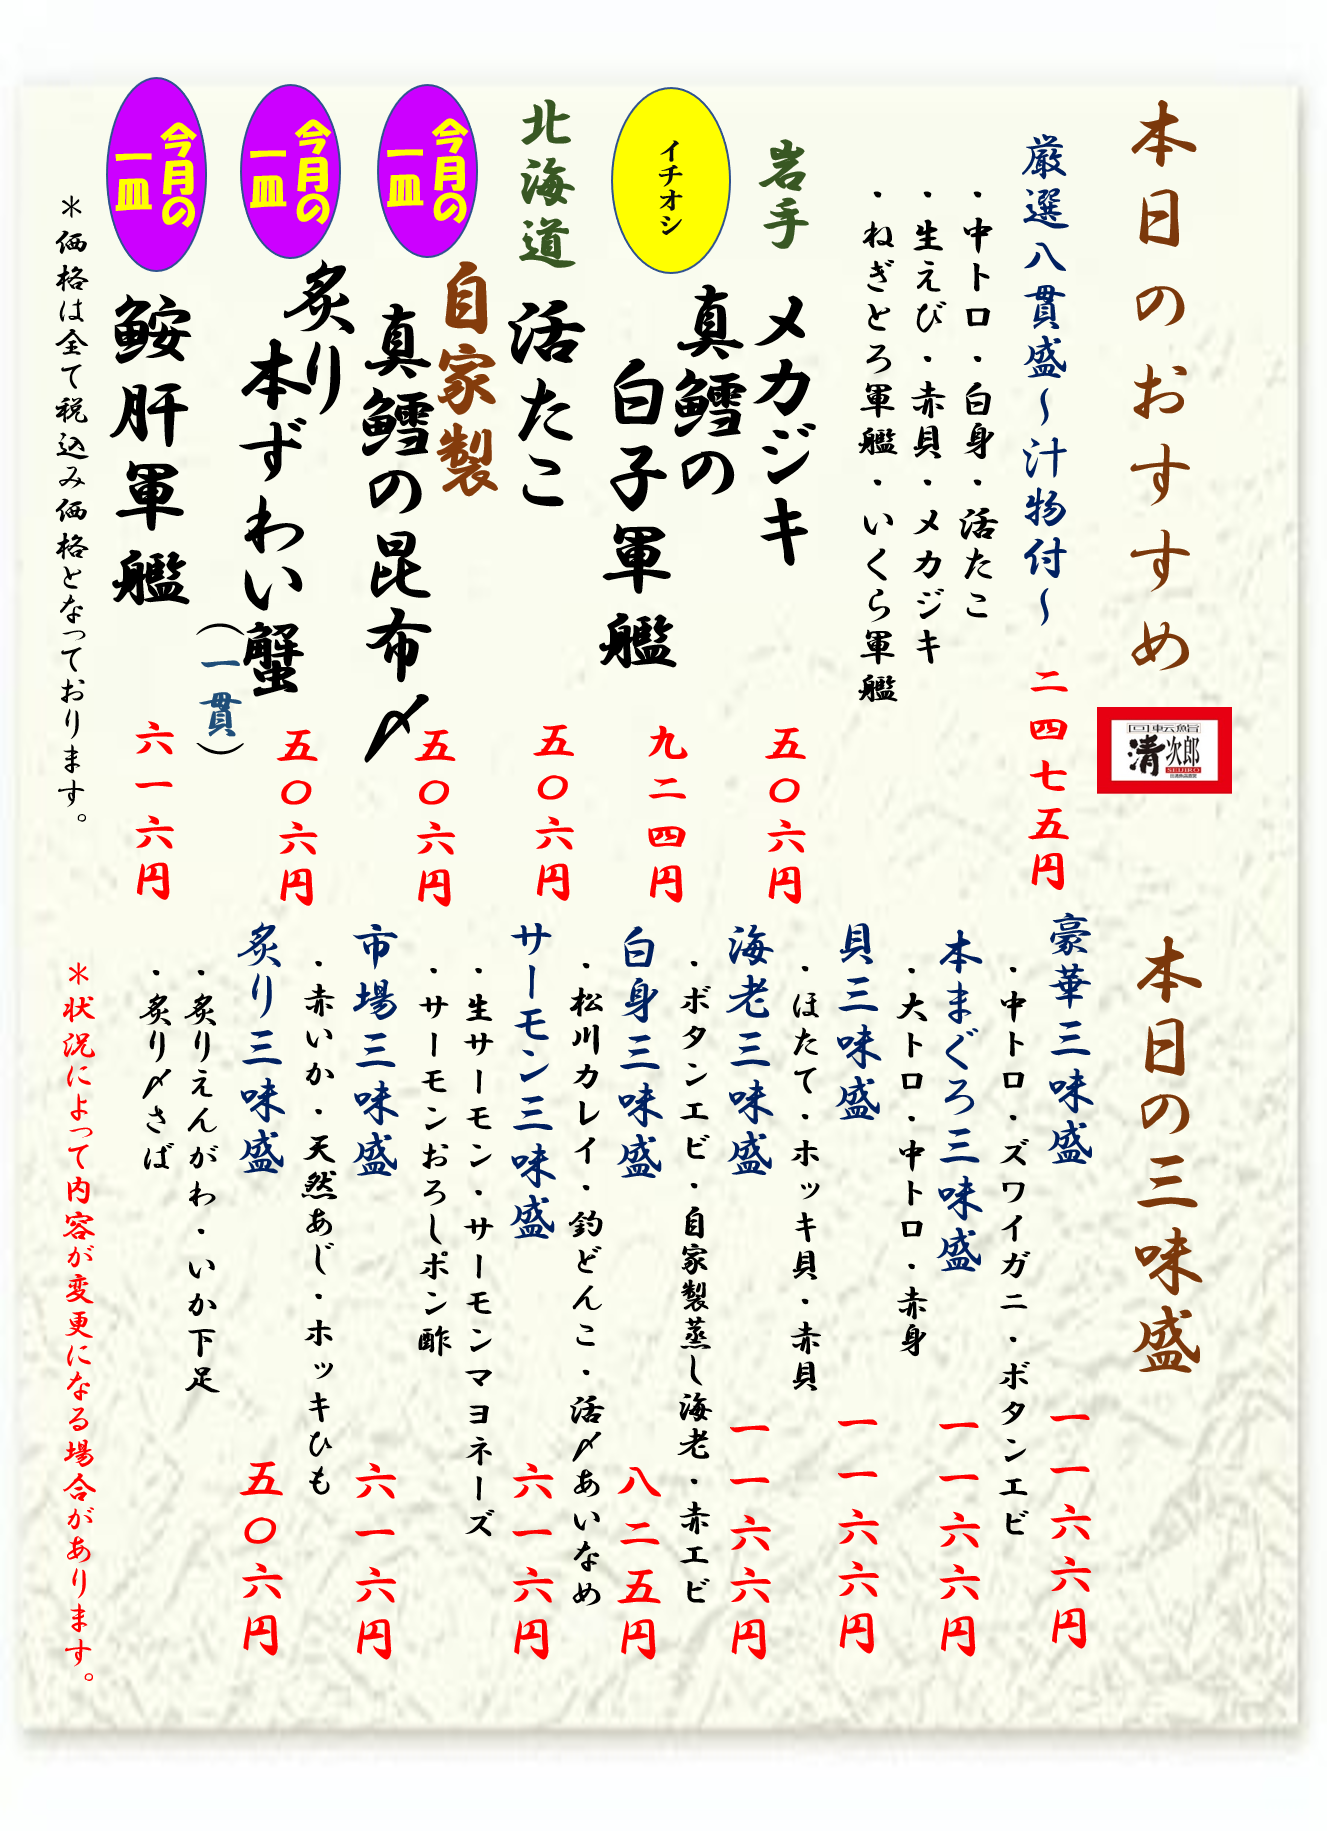 本日のおすすめ
回転鮨
清次郎
SEIJIRO
厳選八貫盛～汁物付～ 二四七五円
・中トロ・白身・活たこ
・生えび・赤貝・メカジキ
・ねぎとろ軍艦・いくら軍艦
岩手
メカジキ 五〇六円
イチオシ
真鱈の
白子軍艦 九二四円
北海道
活たこ 五〇六円
今月の
一皿
自家製
真鱈の昆布〆 五〇六円
今月の
一皿
炙り
本ずわい蟹 五〇六円
（一貫）
今月の
一皿
鮟肝軍艦 六一六円
＊価格は全て税込み価格となっております。
本日の三味盛
豪華三味盛 一一六六円
・中トロ・ズワイガニ・ボタンエビ
本まぐろ三味盛 一一六六円
・大トロ・中トロ・赤身
貝三味盛 一一六六円
・ほたて・ホッキ貝・赤貝
海老三味盛 一一六六円
・ボタンエビ・自家製蒸し海老・赤エビ
白身三味盛 八二五円
・松川カレイ・釣どんこ・活〆あいなめ
サーモン三味盛 六一六円
・生サーモン・サーモンマヨネーズ
・サーモンおろしポン酢
市場三味盛 六一六円
・赤いか・天然あじ・ホッキひも
炙り三味盛 五〇六円
・炙りえんがわ・いか下足
・炙り〆さば
＊状況によって内容が変更になる場合があります。